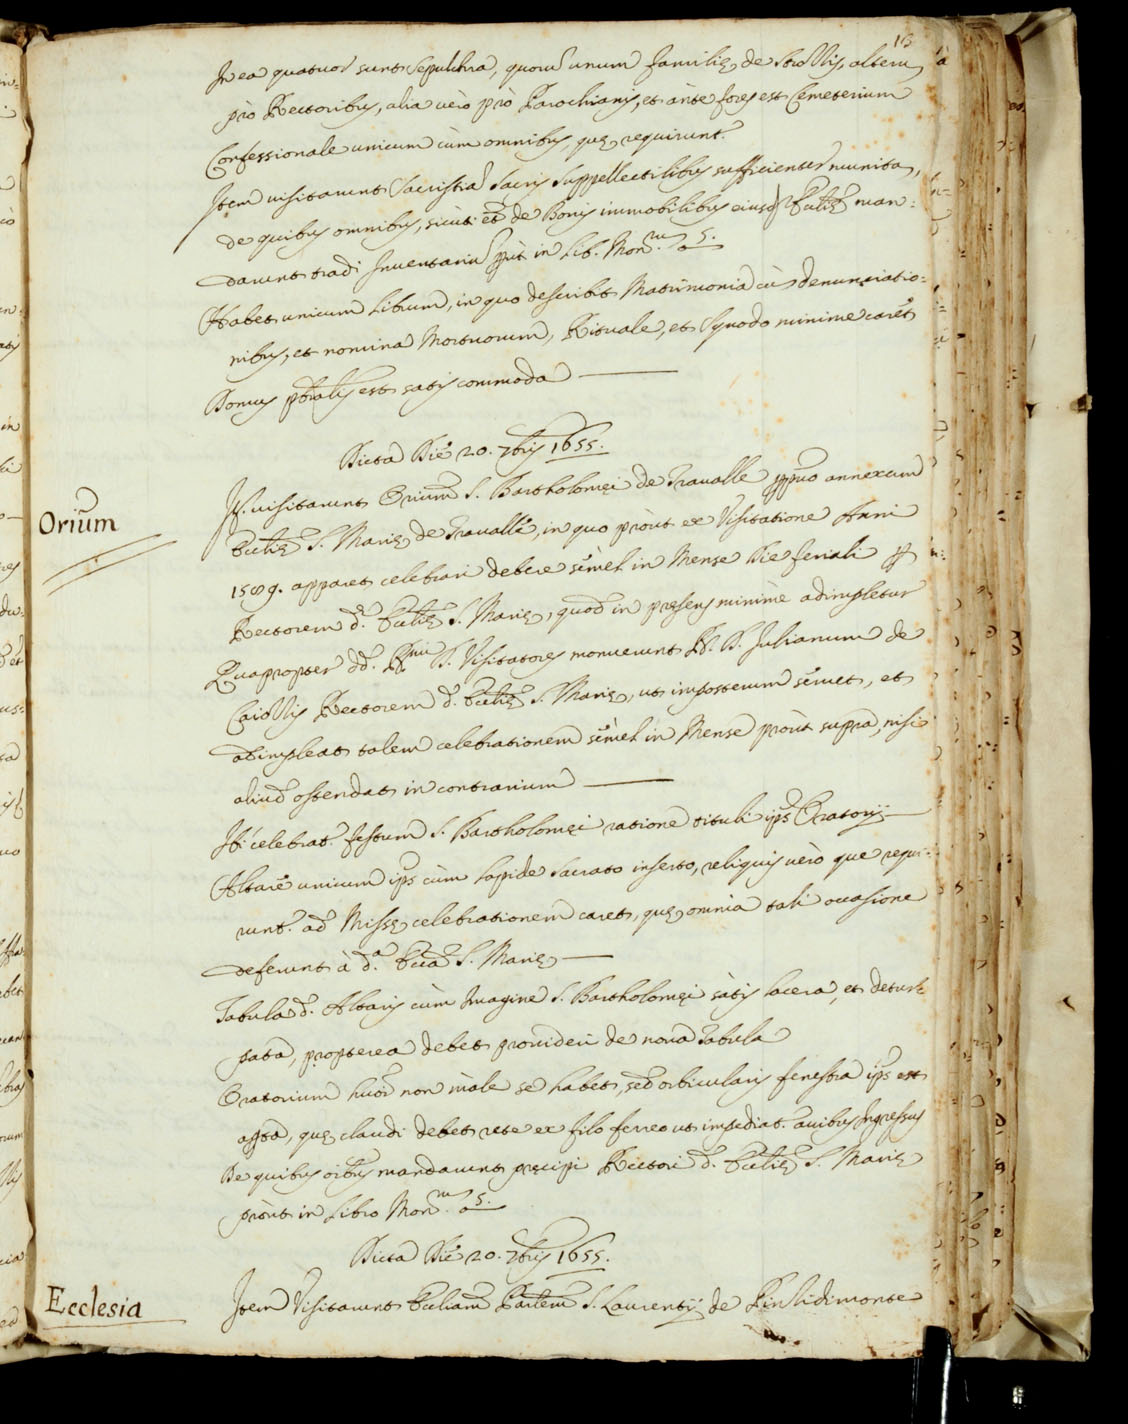 13
In ea quatuor sunt Sepulchra, quorū unum familię de Strozzis, alterū
prò Rectoribus, alia uèro prò Parochianis, et ante fores est Cemeterium
Confessionale unicum cùm omnibus, quę requirunt.r
Item uisitarunt Sacristiā Sacris Suppellectilibus sufficienter munitā,
de quibus omnibus, sicuti et de Bonis immobilibus eiusd. Eccl.ię man:
darunt tradi Inuentariū put in Lib. Mon.m a 5.
Habet unicum Librum, in quo describit Matrimonia cū denunciatio:
nibus, et nomina Mortuorum, Rituale, et Synodo minime caret
Domus p̃tialis est satis commoda
Dicta Die 20. 7bris 1655.
It. uisitarunt Orium S. Bartholomęi de Traualle ppuo annexum
Eccl.ię S. Marię de Traualle, in quo pròut ex Visitatione Anni
1589. apparet celebrari debere sémel in Mense die feriali p
Rectorem d.ę Eccl.ię S. Marię, quod in pręsens minime adimpletur
Quapropter dd. Rmi D. Visitatores monuerunt R. D. Julianum de
Caiozzis Rectorem d. Eccl.ię S. Marię, ut imposterum séruet, et
adimpleat talem celebrationem sémel in Mense pròut supra, nisi
aliud ostendat in contrarium
Ibi celebrat.r festum S. Bartholomęi ratione tituli ips.s Oratorij
Altare unicum ips cùm lapide sacrato inserto, reliquis uèro que requi:
runt.r ad Missę celebrationem caret, quę omnia tali occasione
deferunt.r à d.a Ecc.a S. Marię
Tabula d. Altaris cùm Imagine S. Bartholomęi sàtis lacera, et detur:
pata, propterea debet prouideri de noua Tabula
Oratorium huōi non màle se habet, sed orbicularis fenestra ips.s est
apta, quę claudi debet rete ex filo ferreo ut impediat.r auibus Ingressus
De quibus oibus mandarunt pręcipi Rectori d. Eccl.ię S. Marię
pròut in Libro Mon.m a 5.
Dicta Die 20. 7bris 1655.
Item Visitarunt Eccliam Parlem S. Laurentij de Pinzidimonte
Orium
Ecclesia